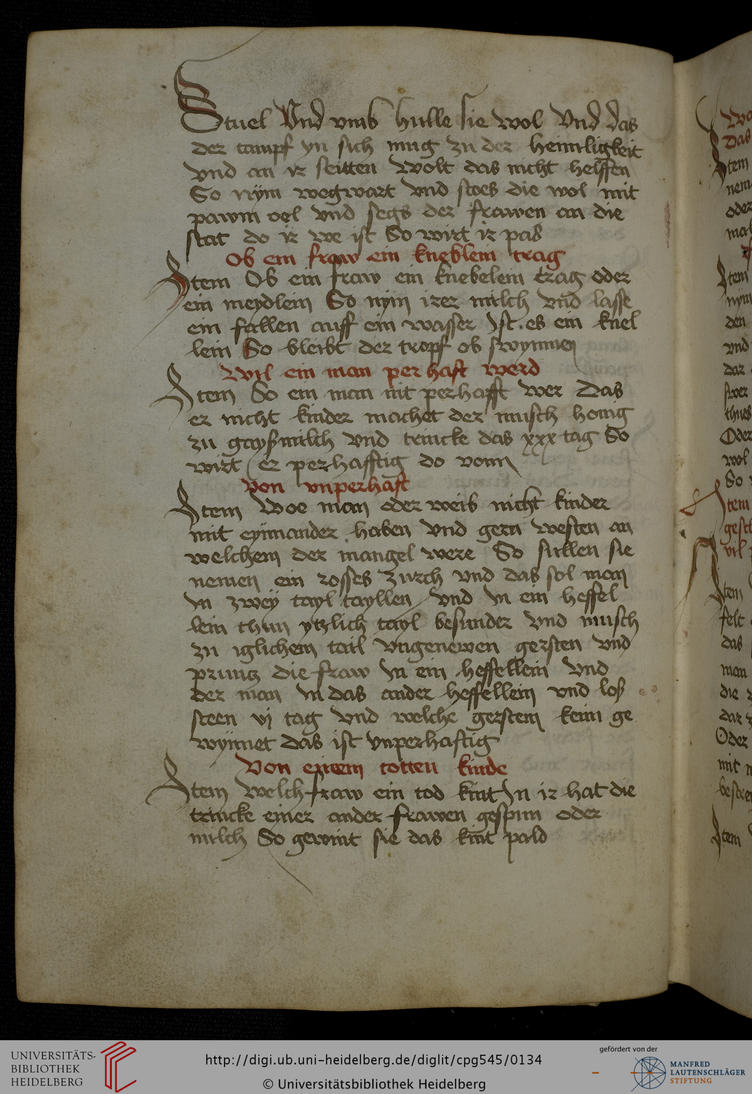 Stuel Vnd vmb hulle sie wol Vnd das
der tampf yn sich mug zu der heimligkeit
vnd an ir seitten Wolt das nicht helffen
So nym wegwart vnd stoes die wol mit
pawm oel vnd legs der frawen an die
stat do ir we ist So wirt ir pas
Ob ein fraw ein kneblein trag
Item Ob ein fraw ein knebelein trag oder
ein meydlein So nym irer milch vnd lasse
ein fallen auff ein wasser Ist es ein knel
lein So bleibt der tropf ob swymmen
Wil ein man perhaft werd
Item So ein man nit perhafft wer Das
er nicht kinder machet der musch honig
zu gayßmilch vnd trincke das xxx tag So
wirt er perhafftig do vonn
Von vnperhaft
Item Woe man oder weib nicht kinder
mit eynnander haben vnd gern westen an
welchem der mangel were So sullen sie
nemen ein rosses zurch vnd das sol man
In zwey tayl tayllen vnd In ein heffel
lein thun ytzlich tayl besunder vnd musch
zu iglichem tail vngenewen gersten vnd
prunz die fraw In ein heffellein vnd
der man In das ander heffellein vnd loß
steen vj tag vnd welche gersten keim ge
wynnet das ist vnperhaftig
Von eynem totten kinde
Item Welch fraw ein tod kint In ir hat die
trincke einer ander frawen gespun oder
milch So gewint sie das kint pald
Item
nem
oder
Item
nym
den
vnd
dar
Oder
wol
So
Item
Item
das
man
die
Oder
mit
Item
UNIVERSITÄTS-
BIBLIOTHEK
HEIDELBERG
http://digi.ub.uni-heidelberg.de/diglit/cpg545/0134
© Universitätsbibliothek Heidelberg
gefördert von der
MANFRED
LAUTENSCHLÄGER
STIFTUNG